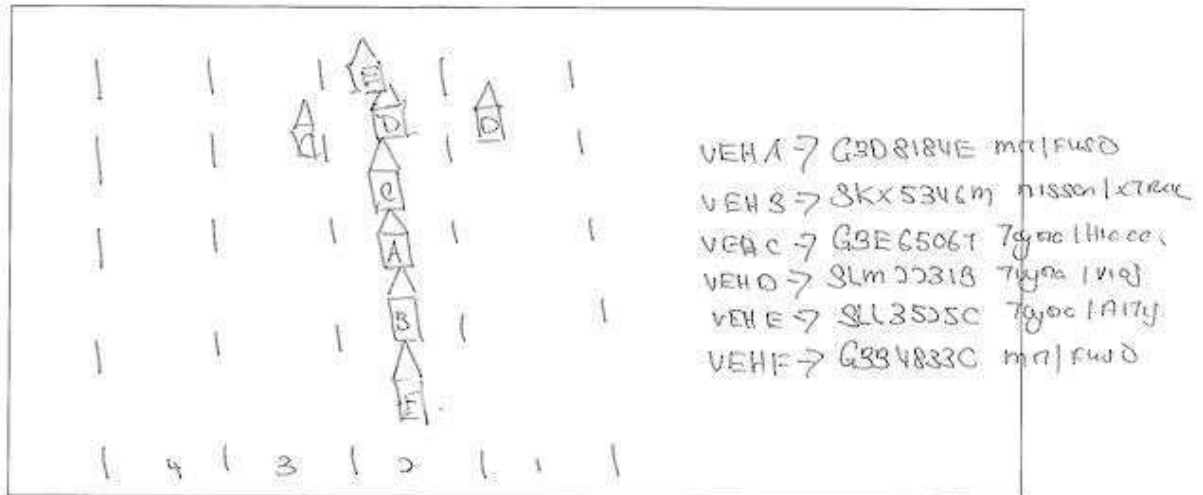 E
D
D
C
C
A
VEH A → GBD8184E MIT/FUSO
VEH B → SKX5346M NISSAN/XTRAIL
VEH C → GBE6506T Toyota/Hiace
VEH D → SLM2231B Toyota/VIOS
B
VEH E → SLL3525C Toyota/ALTIS
VEH F → GBB4833C MIT/FUSO
F
4 3 2 1